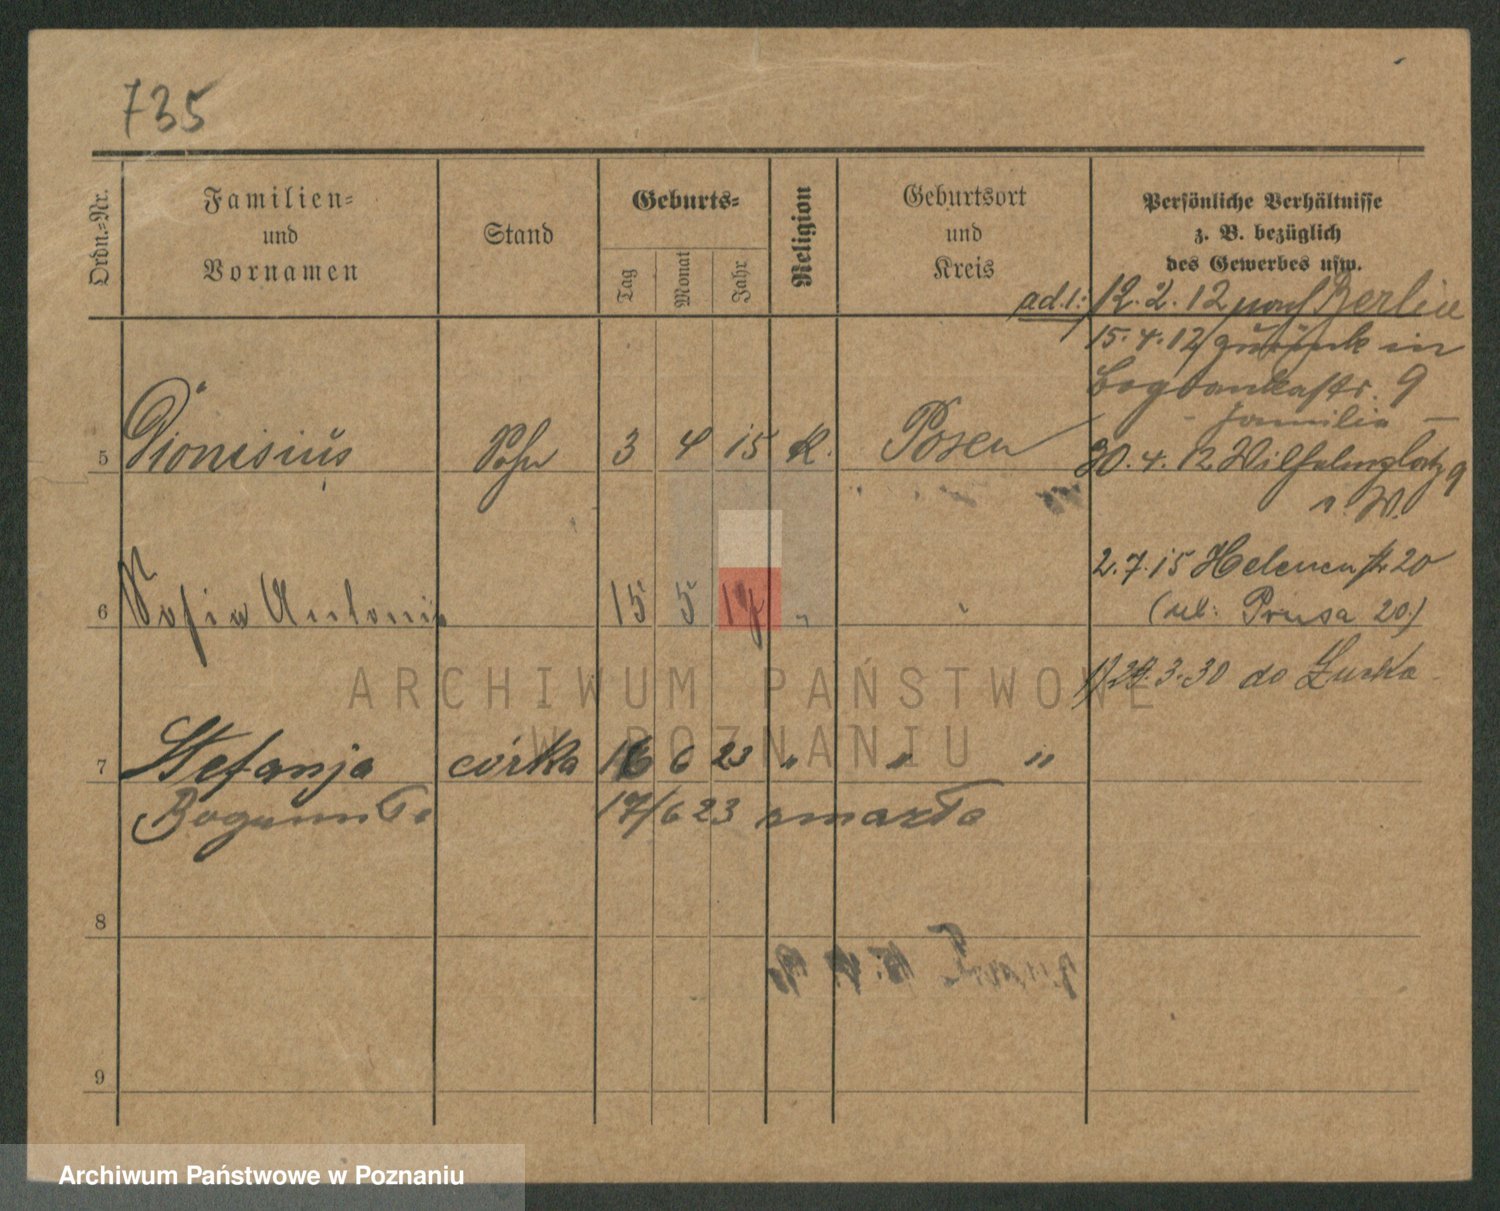 735
Ordn.-Nr.
Familien-
und
Vornamen
Stand
Geburts-
Tag
Monat
Jahr
Religion
Geburtsort
und
Kreis
Persönliche Verhältnisse
z. B. bezüglich
des Gewerbes usw.
ad.1: 12.2.12 nach Berlin
15.4.12 zurück in
Bogdankastr. 9
- Familie -
5 Dionisius Sohn 3 4 15 K. Posen
30.4.12 Wilhelmplatz 9
n. W.
2.7.15 Helenenstr 20
6 Sofia Antonie 15 5 17 "
(ul: Prusa 20)
29.3.30 do Łuska
ARCHIWUM PAŃSTWOWE
W POZNANIU
7 Stefanja córka 16 6 23 " " "
Bogumiła 17/6 23 zmarła
8
9
Archiwum Państwowe w Poznaniu